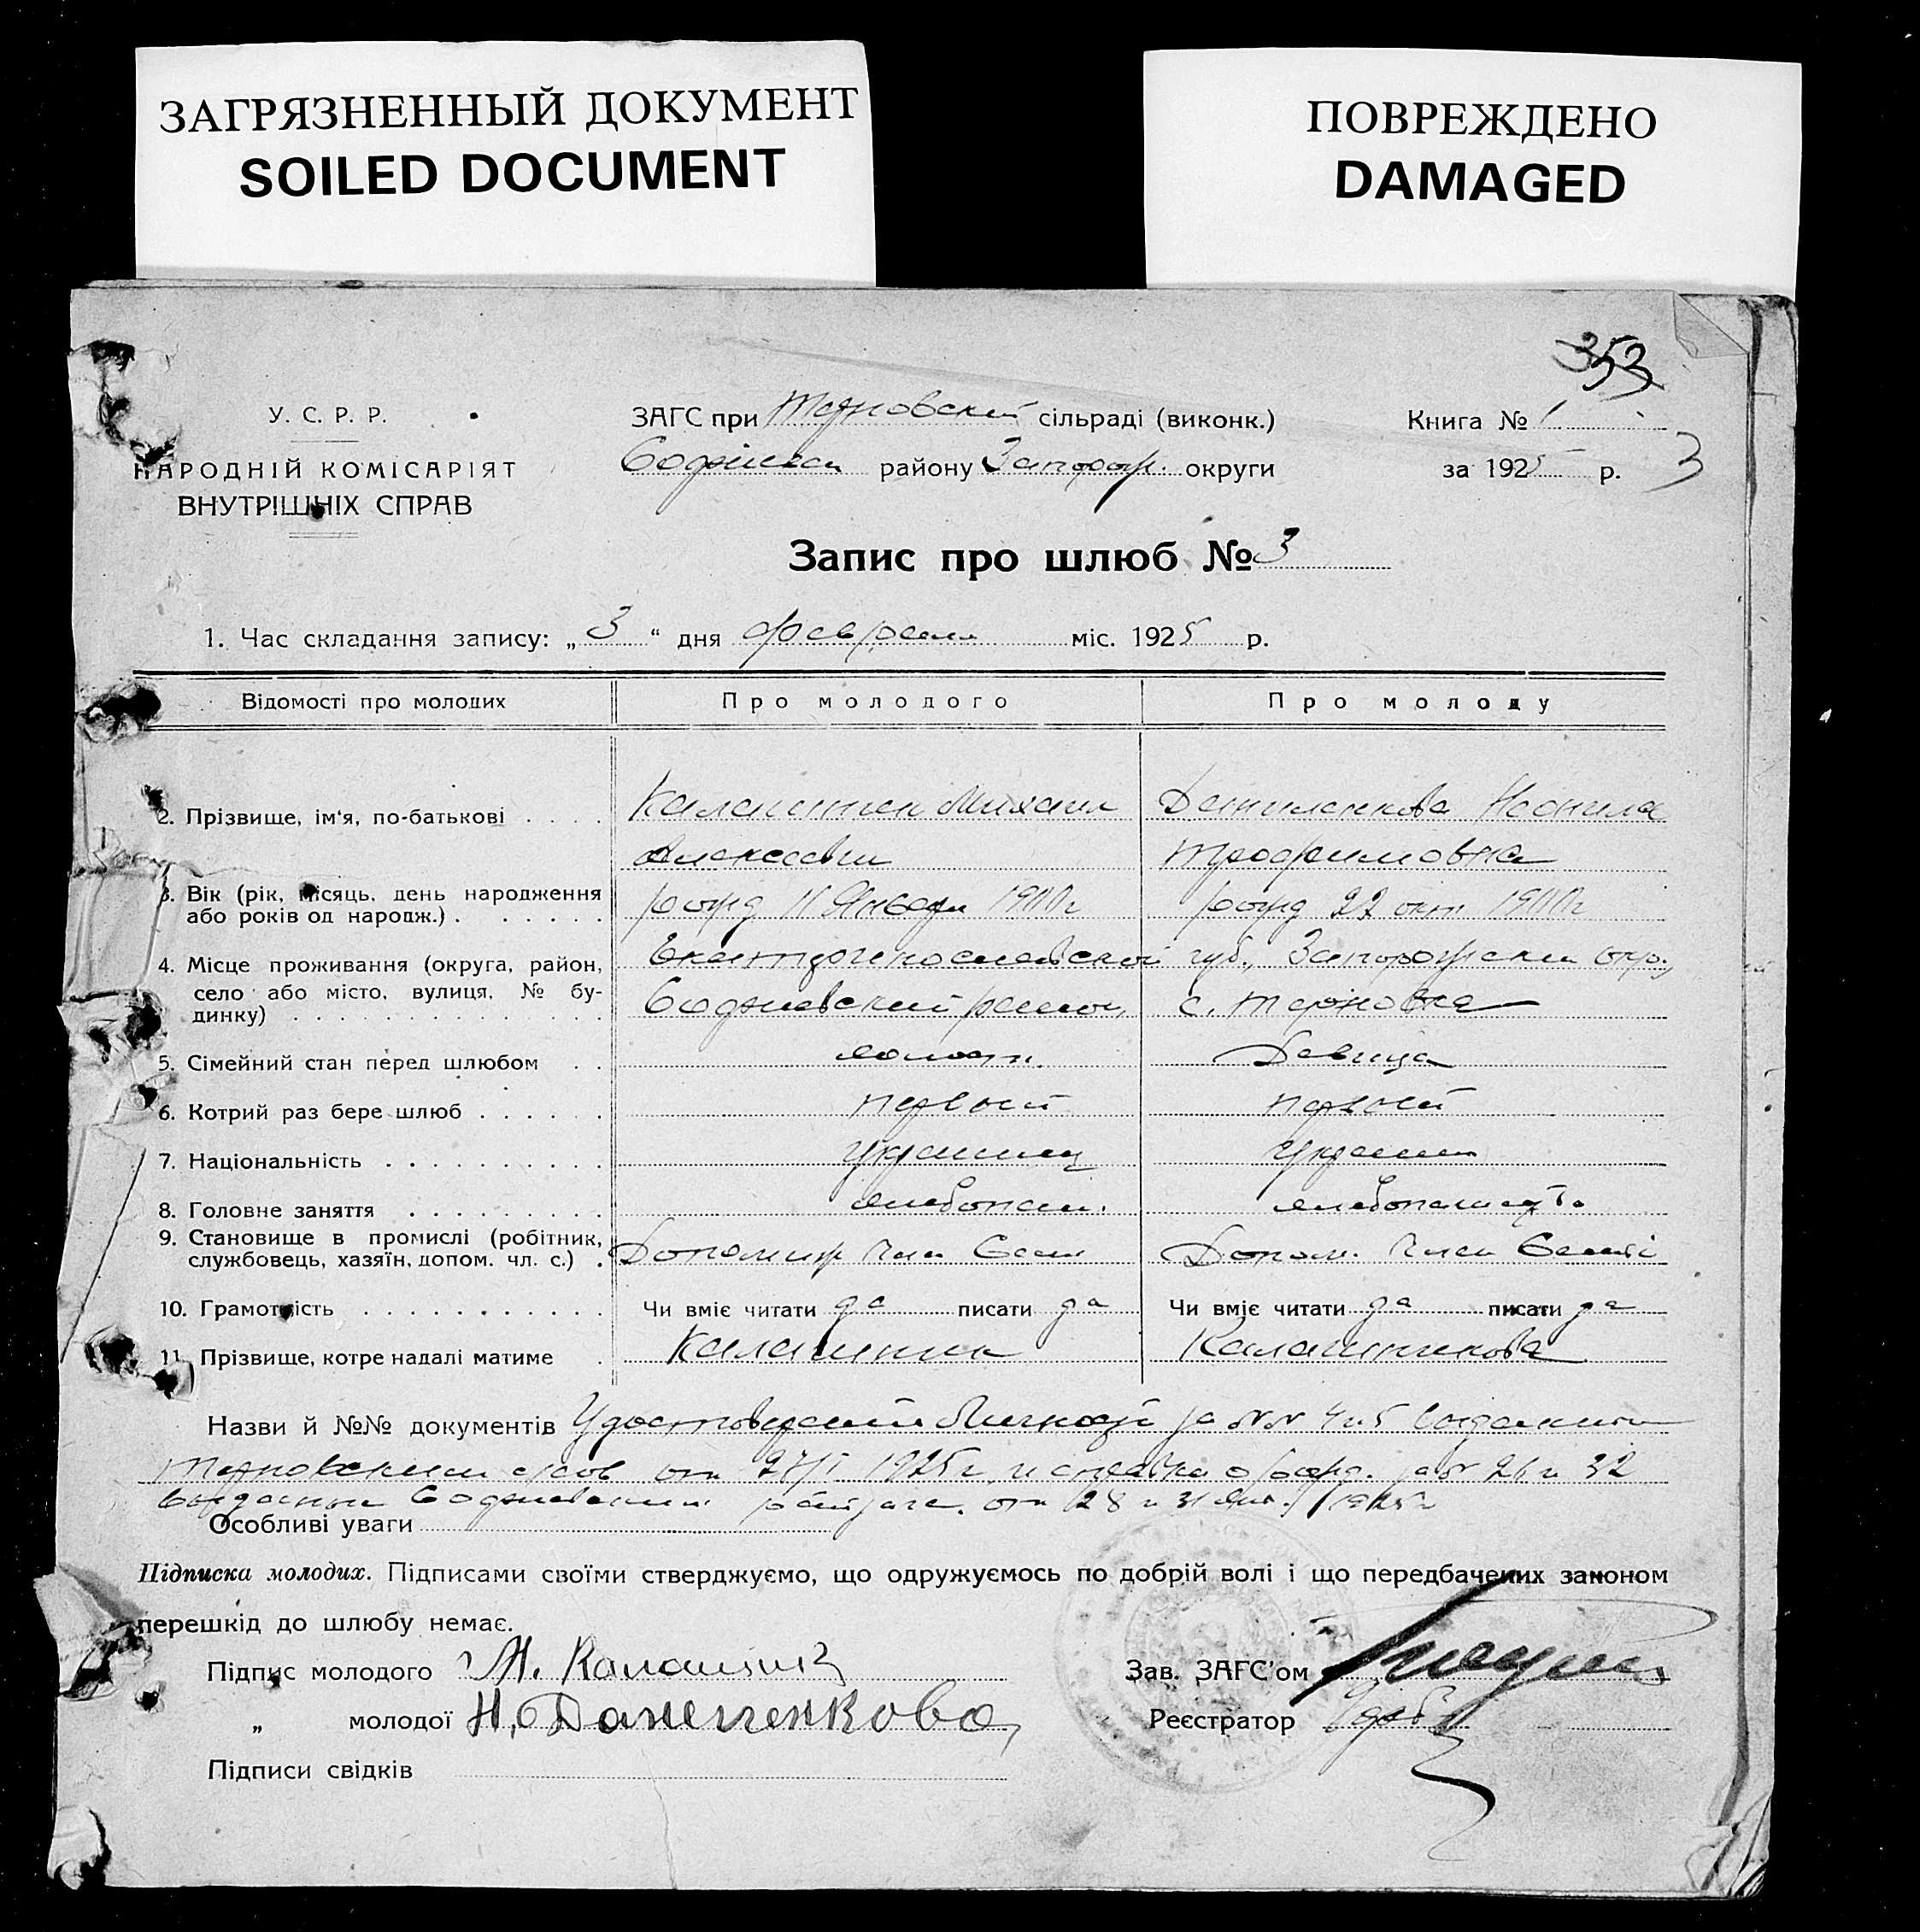 ЗАГРЯЗНЕННЫЙ ДОКУМЕНТ
SOILED DOCUMENT
ПОВРЕЖДЕНО
DAMAGED
353
У. С. Р. Р.
НАРОДНІЙ КОМІСАРІЯТ
ВНУТРІШНІХ СПРАВ
ЗАГС при Терновский сільраді (виконк.)
району Запорож. округи
Книга № 1
за 1925 р. 3
Запис про шлюб № 3
1. Час складання запису: „ 3 “ дня февраля міс. 1925 р.
Відомості про молодих
Про молодого
Про молоду
2. Прізвище, ім‘я, по-батькові . . . .
Калашник Михаил
Алексеевич
Даниленкова Неонила
Трофимовна
3. Вік (рік, місяць, день народження
або років од народж.) . . . . . .
рожд 11 Января 1900 г
рожд 22 окт 1900 г
4. Місце проживання (округа, район,
село або місто, вулиця, № бу-
динку) . . . . . . . . . . . . .
Екатеринославской губ., Запорожский окр.,
район, с. Терновка
5. Сімейний стан перед шлюбом . .
холост. Девица
6. Котрий раз бере шлюб . . . . . .
первый первый
7. Національність . . . . . . . . . .
украинец украин
8. Головне заняття . . . . . . . . .
хлебопаш.
9. Становище в промислі (робітник,
службовець, хазяїн, допом. чл. с.) .
член Семьи Допом. член Семьі
10. Грамотність . . . . . . . . . . .
Чи вміє читати да писати да
Чи вміє читати да писати да
11. Прізвище, котре надалі матиме .
Калашник Калашникова
Назви й №№ документів Удостоверений Личности за №№ 4 и 5 выданным
Терновским с/сов от 27/I 1925 г. и справка о рожд. за № 26 и 32
от 28 и 31 Янв. 1925 г
Особливі уваги
Підписка молодих. Підписами своїми стверджуємо, що одружуємось по добрій волі і що передбачених законом
перешкід до шлюбу немає.
Підпис молодого М. Калашник
„ молодої Н, Даниленкова,
Підписи свідків
Зав. ЗАГС’ом
Реєстратор